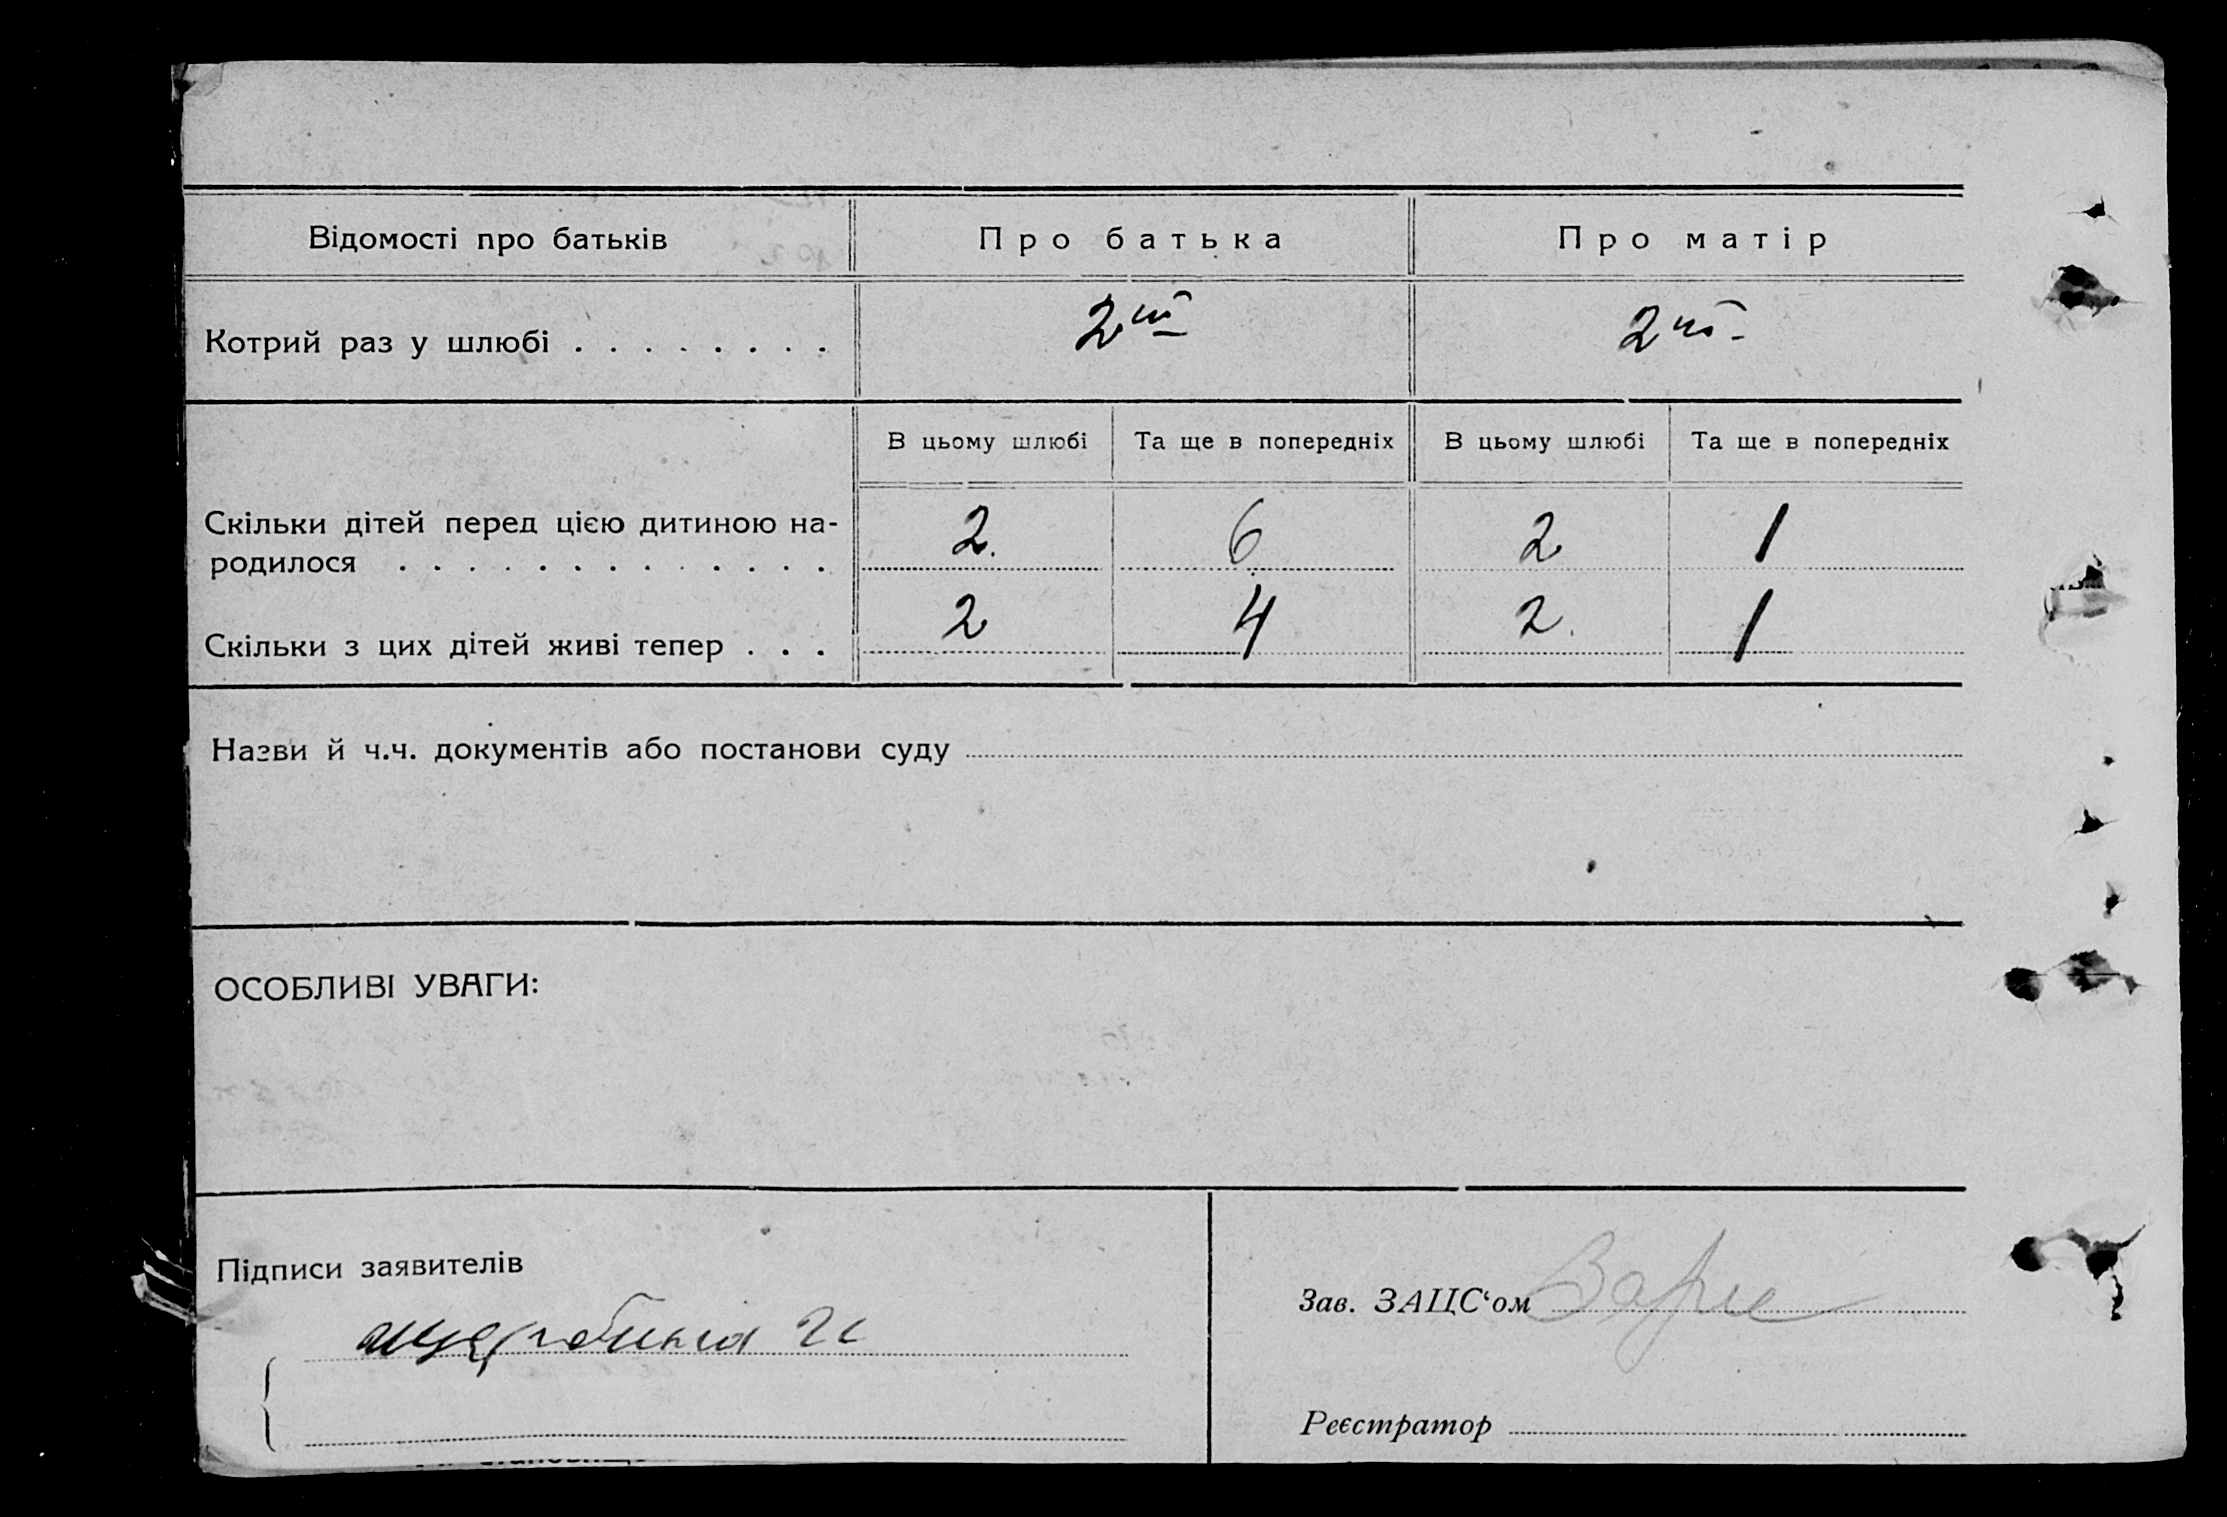 Відомості про батьків Про батька Про матір
Котрий раз у шлюбі . . . . . . . . 2й 2й
В цьому шлюбі Та ще в попередніх В цьому шлюбі Та ще в попередніх
Скільки дітей перед цією дитиною на-
родилося . . . . . . . . . . . . . 2 6 2 1
Скільки з цих дітей живі тепер . . . 2 4 2 1
Назви й ч.ч. документів або постанови суду
ОСОБЛИВІ УВАГИ:
Підписи заявителів
Зав. ЗАЦС‘ом
Реєстратор